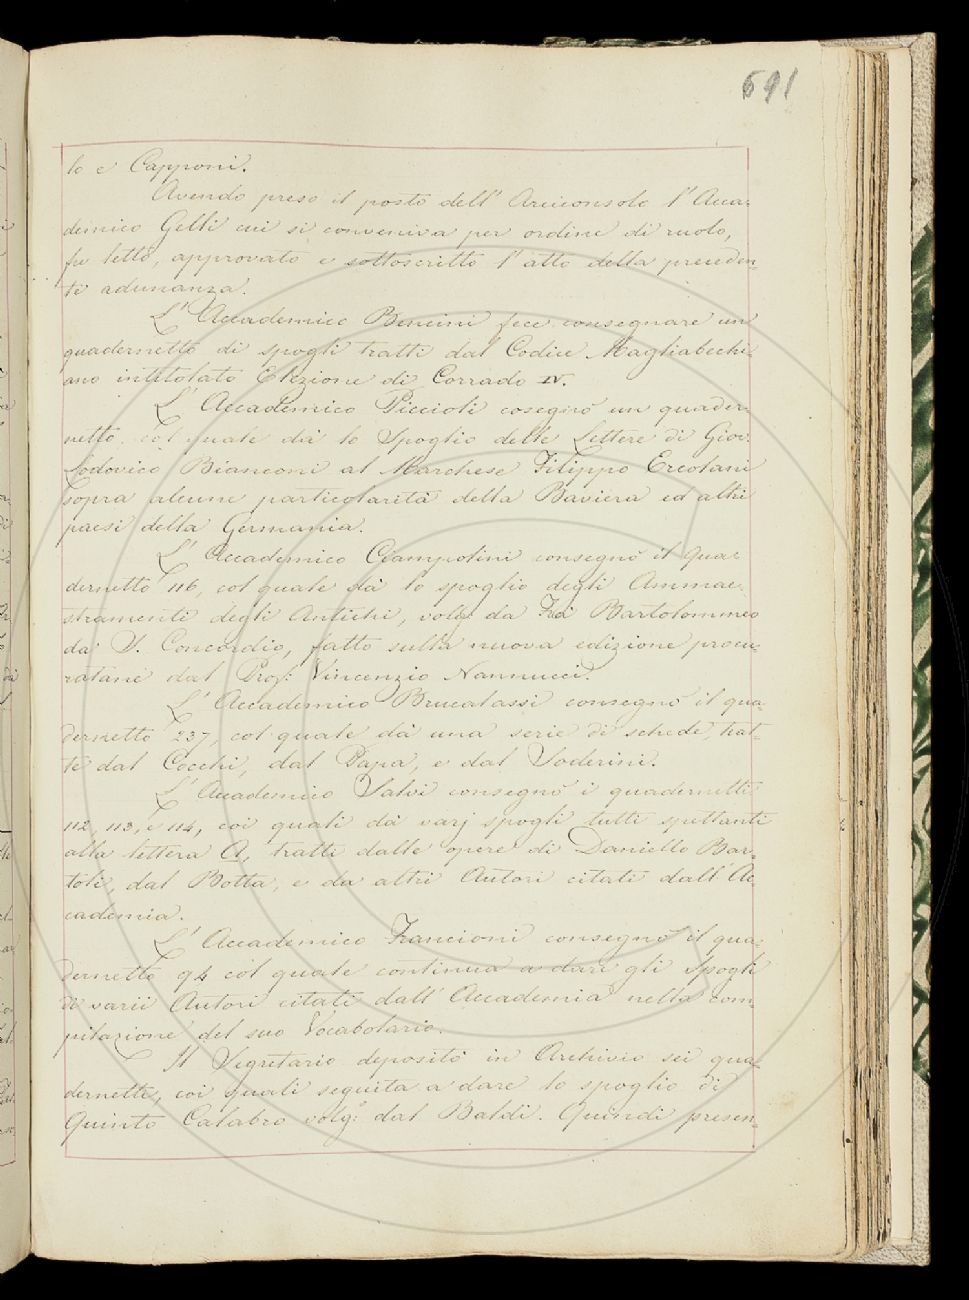 691
lo e Capponi.
Avendo preso il posto dell' Arciconsolo l' Acca-
demico Gelli cui si conveniva per ordine di ruolo,
fu letto, approvato e sottoscritto l' atto della preceden-
te adunanza.
L' Accademico Bencini fece consegnare un
quadernetto di spogli tratti dal Codice Magliabechi-
ano intitolato Elezione di Corrado IV.
L' Accademico Piccioli cosegnò un quader-
netto col quale dà lo Spoglio delle Lettere di Giov.
Lodovico Bianconi al Marchese Filippo Ercolani
sopra alcune particolarità della Baviera ed altri
paesi della Germania.
L' Accademico Ciampolini consegnò il qua-
dernetto 116, col quale dà lo spoglio degli Ammae-
stramenti degli Antichi, volg. da Fra Bartolommeo
da S. Concordio, fatto sulla nuova edizione procu-
ratane dal Prof. Vincenzio Nannucci.
L' Accademico Brucalassi consegnò il qua-
dernetto 237, col quale dà una serie di schede, trat-
te dal Cocchi, dal Papa, e dal Soderini.
L' Accademico Salvi consegnò i quadernetti
112, 113, e 114, coi quali dà varj spogli tutti spettanti
alla lettera A, tratti dalle opere di Daniello Bar-
toli, dal Botta, e da altri Autori citati dall' Ac
cademia.
L' Accademico Francioni consegnò il qua-
dernetto 94 col quale continua a dare gli Spogli
di varii Autori citati dall' Accademia nella com-
pilazione del suo Vocabolario.
Il Segretario depositò in Archivio sei qua-
dernetti, coi quali seguita a dare lo spoglio di
Quinto Calabro volg. dal Baldi. Quindi presen-